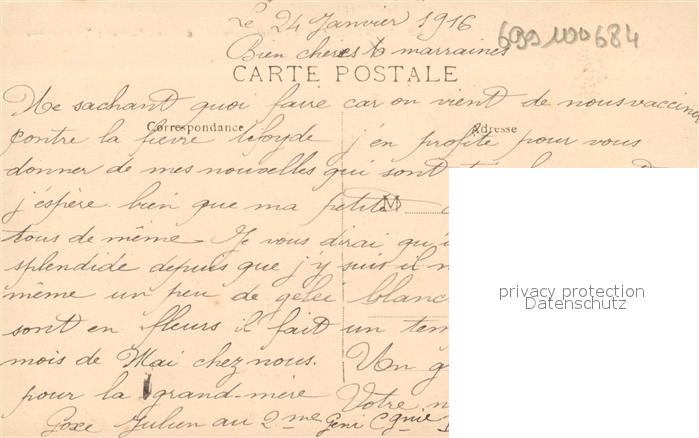 Le 24 Janvier 1916
699100684
Bien chères marraines
CARTE POSTALE
Ne sachant quoi faire car on vient de nous vacciner
Correspondance
Adresse
contre la fievre tifoyde j'en profite pour vous
donner de mes nouvelles qui sont
j'éspère bien que ma petite
M
tous de même Je vous dirai qu'i
splendide depuis que j'y suis il n
même un peu de gelei blanc
privacy protection
Datenschutz
sont en fleurs il fait un tem
mois de Mai chez nous. Un g
pour la grand-mère Votre n
Julien au 2me Géni Cgnie